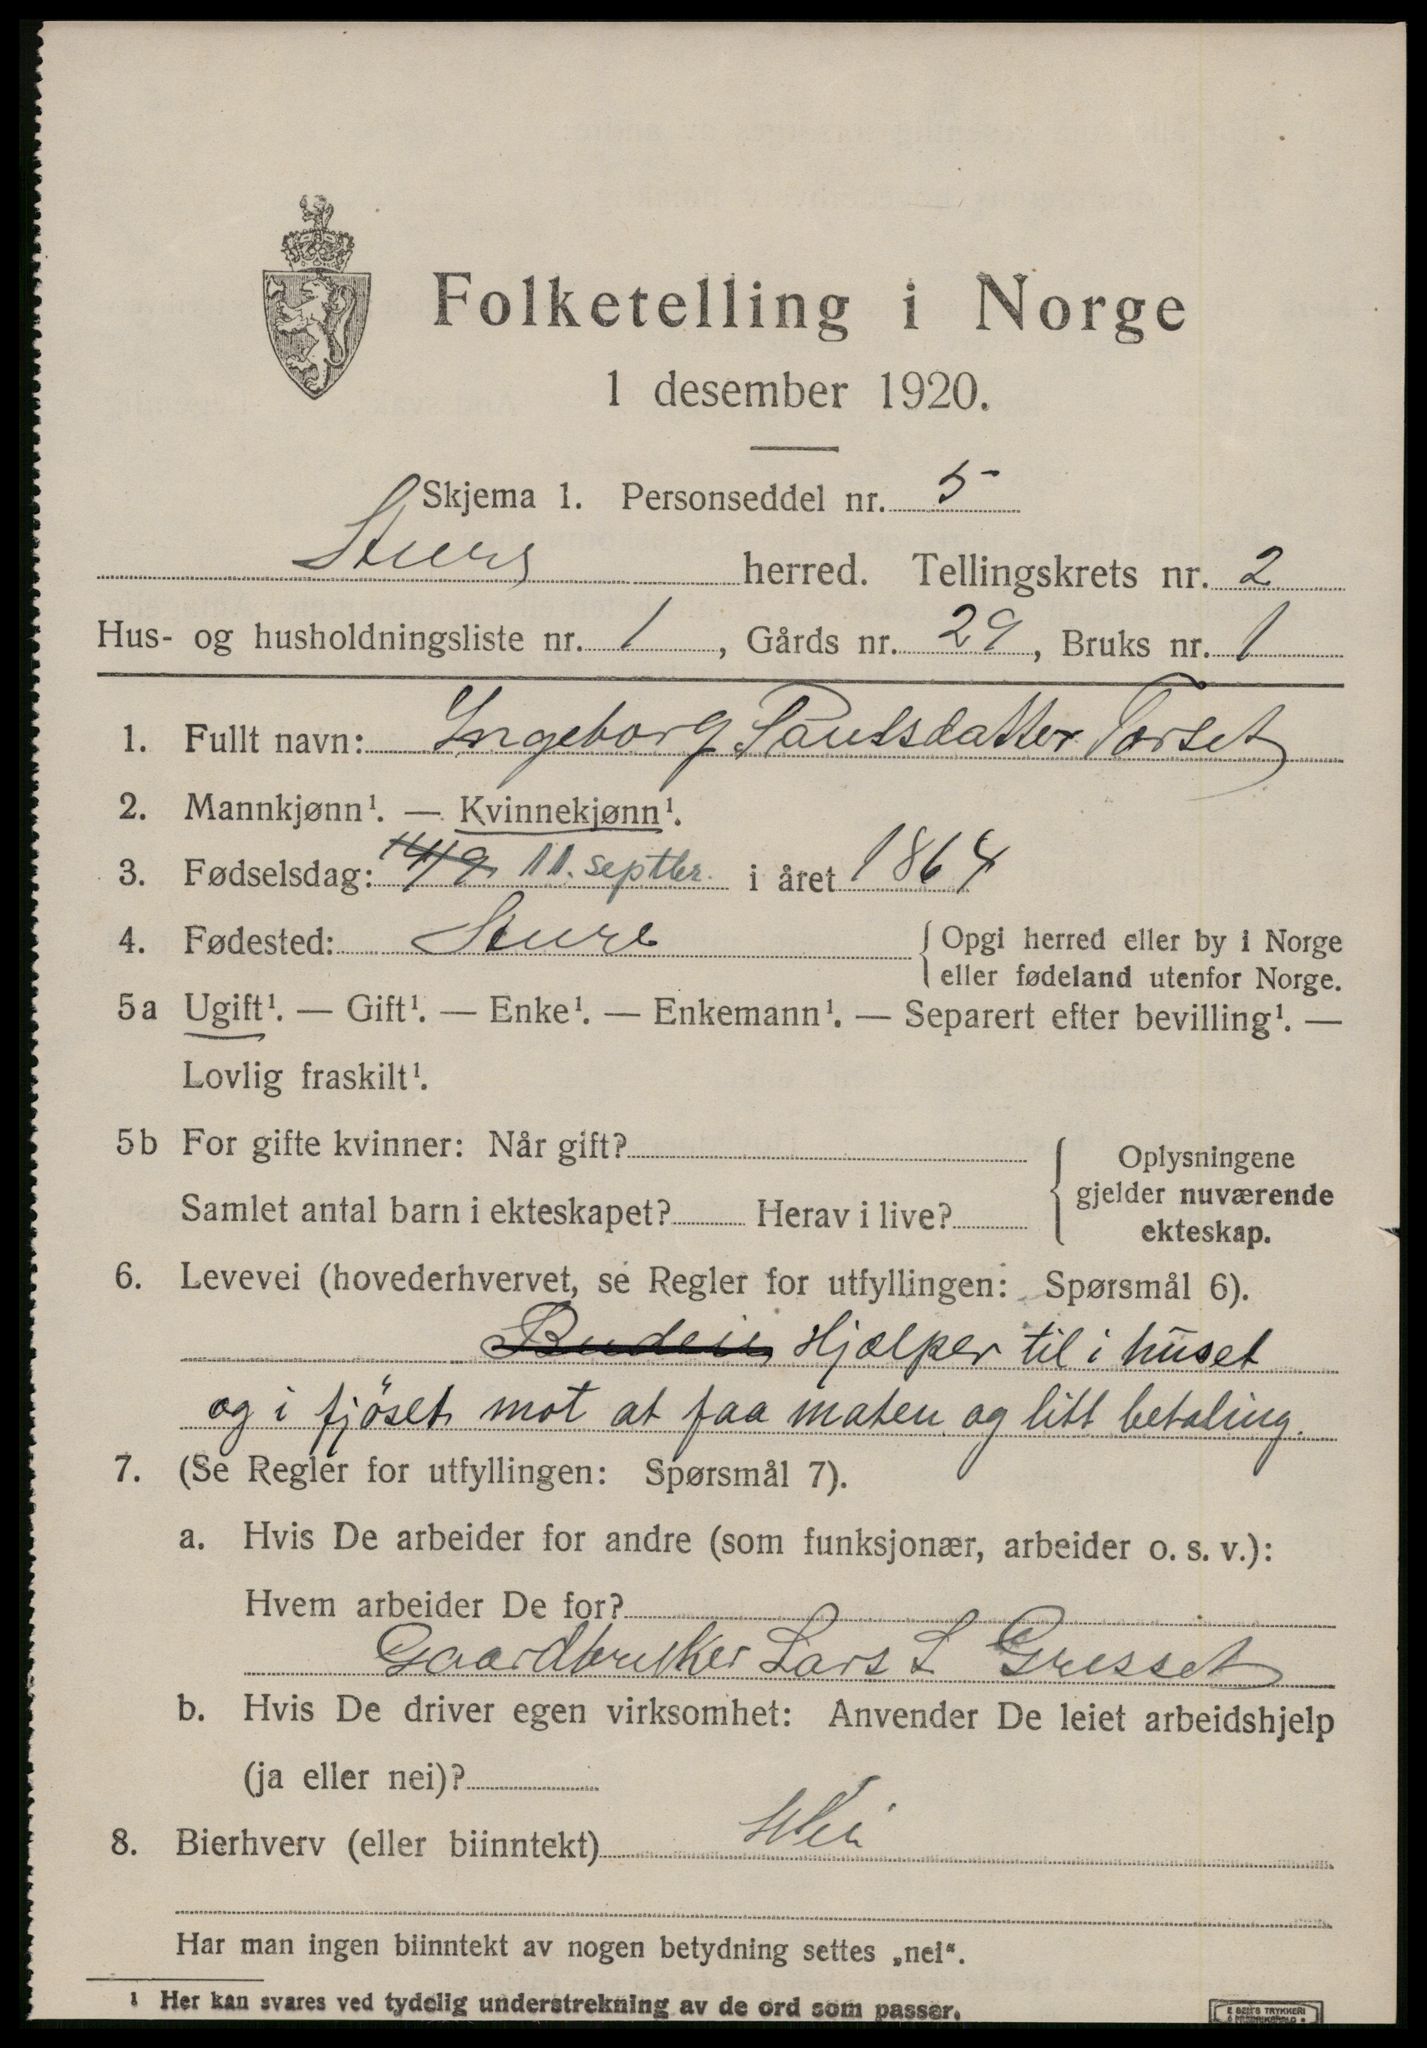 Folketelling i Norge
1 desember 1920.
Skjema 1. Personseddel nr. 5
Sture herred. Tellingskrets nr. 2
Hus- og husholdningsliste nr. 1, Gårds nr. 29, Bruks nr. 1
1. Fullt navn: Ingeborg Paulsdatter Torset
2. Mannkjønn¹. — Kvinnekjønn¹.
3. Fødselsdag: 11/9 11. septbr. i året 1864
4. Fødested: Sture { Opgi herred eller by i Norge
eller fødeland utenfor Norge.
5a Ugift¹. — Gift¹. — Enke¹. — Enkemann¹. — Separert efter bevilling¹. —
Lovlig fraskilt¹.
5b For gifte kvinner: Når gift? { Oplysningene
gjelder nuværende
ekteskap.
Samlet antal barn i ekteskapet? Herav i live?
6. Levevei (hovederhvervet, se Regler for utfyllingen: Spørsmål 6).
Budeie Hjælper til i huset
og i fjöset mot at faa maten og litt betaling.
7. (Se Regler for utfyllingen: Spørsmål 7).
a. Hvis De arbeider for andre (som funksjonær, arbeider o. s. v.):
Hvem arbeider De for?
Gaardbruker Lars L Gresset
b. Hvis De driver egen virksomhet: Anvender De leiet arbeidshjelp
(ja eller nei)?
8. Bierhverv (eller biinntekt) Nei
Har man ingen biinntekt av nogen betydning settes „nei“.
¹ Her kan svares ved tydelig understrekning av de ord som passer.